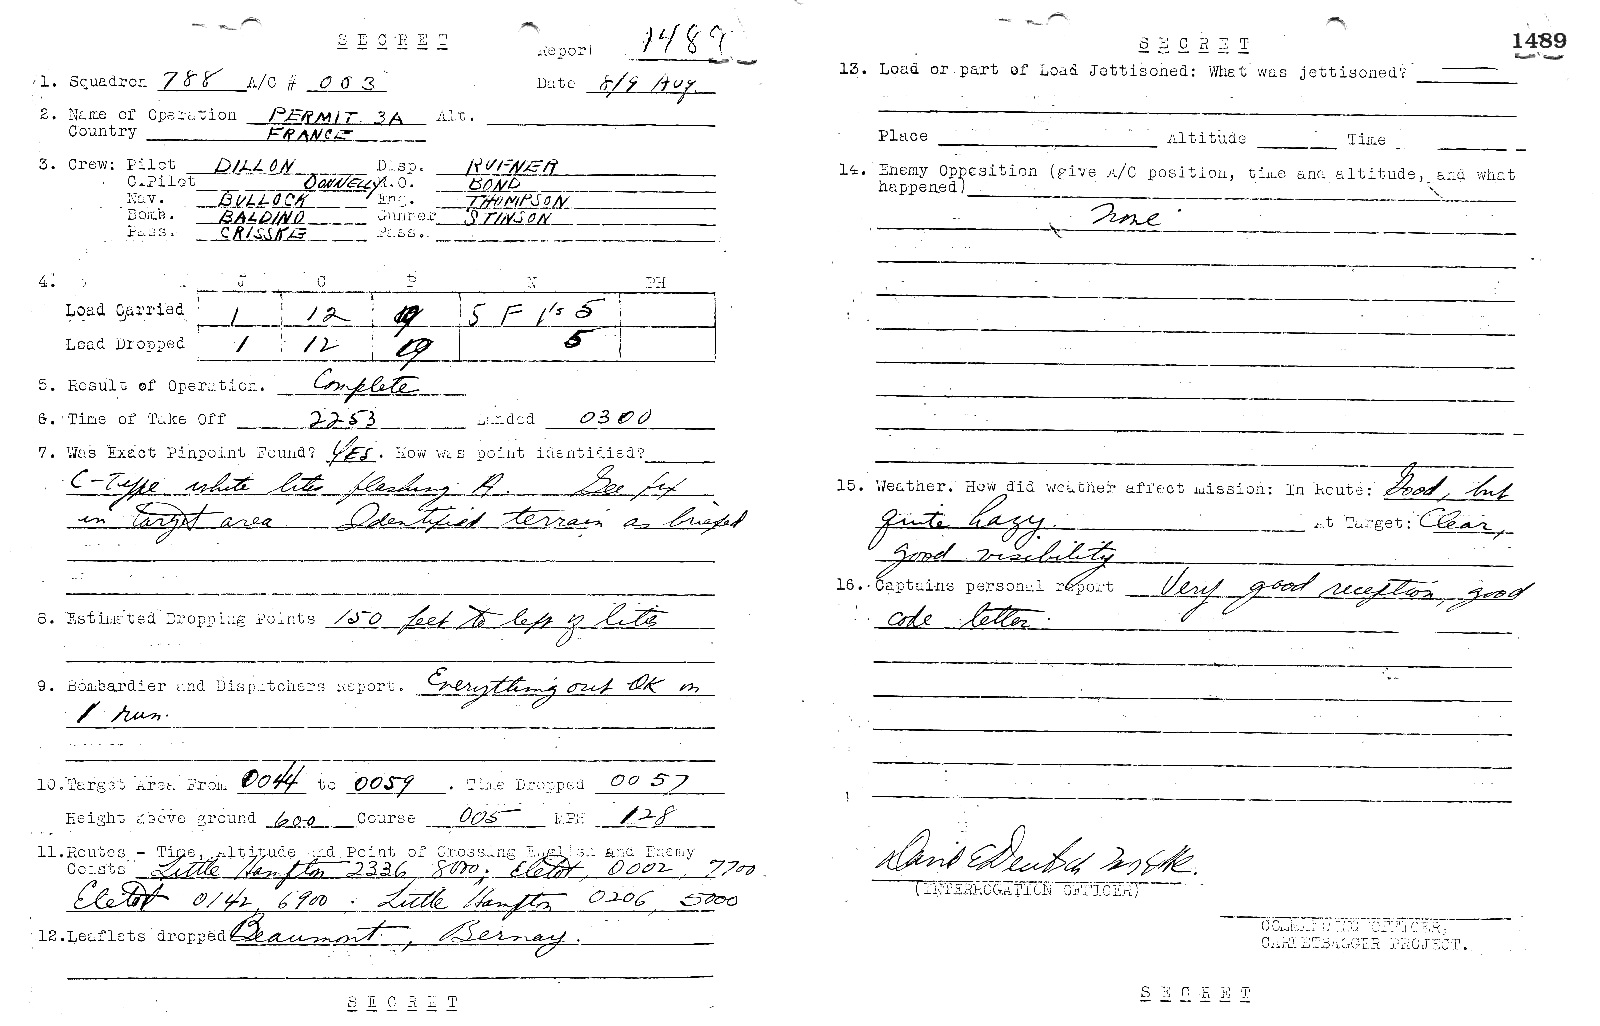 S E C R E T
Report 1489
1. Squadron 788 A/C # 003 Date 8/9 Aug.
2. Name of Operation PERMIT 3A Alt.
Country FRANCE
3. Crew: Pilot DILLON Disp. RUFNER
C.Pilot DONNELLY R.O. BOND
Nav. BULLOCK Eng. THOMPSON
Bomb. BALDINO Gunner STINSON
Pass. CRISSKE Pass.
4. J C P N PH
Load Carried 1 12 19 5 F 1's 5
Load Dropped 1 12 19 5
5. Result of Operation. Complete
6. Time of Take Off 2253 Landed 0300
7. Was Exact Pinpoint Found? YES. How was point identified?
C-Type white lites flashing A. Gee fix
in target area Identified terrain as briefed
8. Estimated Dropping Points 150 feet to left of lites
9. Bombardier and Dispatchers Report. Everything out OK in
1 run.
10. Target Area From 0044 to 0059 . Time Dropped 0057
Height above ground 600 Course 005 MPH 128
11. Routes - Time, Altitude and Point of Crossing English and Enemy
Coasts Little Hampton 2336, 8000; Eletot, 0002, 7700
Eletot 0142, 6900. Little Hampton 0206, 5000
12. Leaflets dropped Beaumont, Bernay.
S E C R E T
S E C R E T
1489
13. Load or part of Load Jettisoned: What was jettisoned?
Place Altitude Time
14. Enemy Opposition (give A/C position, time and altitude, and what
happened)
None
15. Weather. How did weather affect mission: In Route: Good, but
quite hazy. At Target: Clear,
good visibility
16. Captains personal report Very good reception, good
code letter.
(INTERROGATION OFFICER)
COMMANDING OFFICER,
CARPETBAGGER PROJECT.
S E C R E T